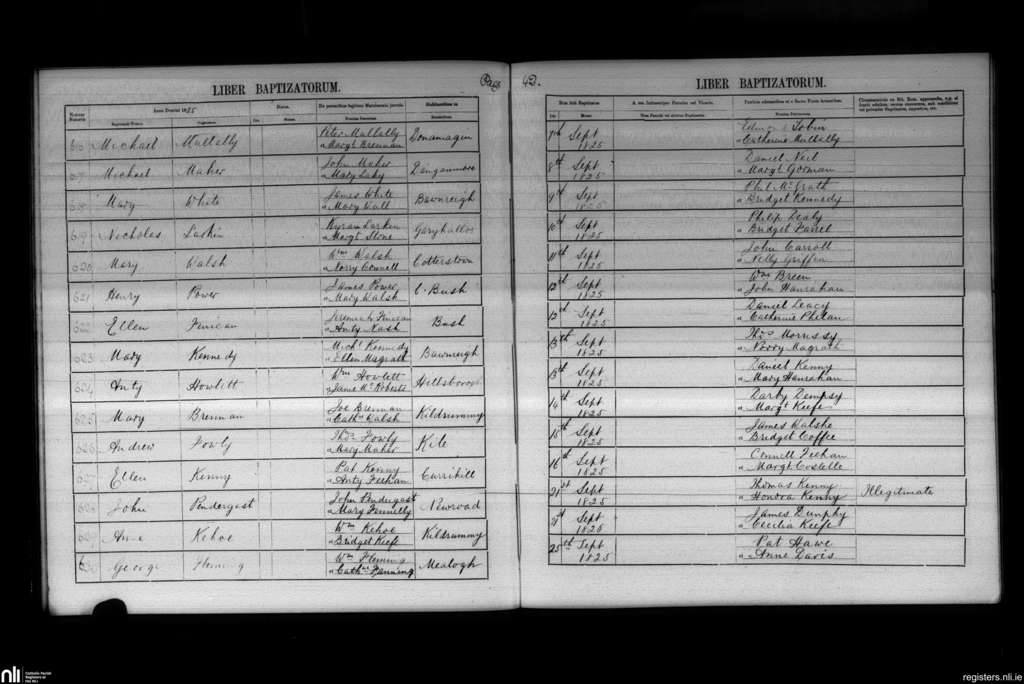 Page 42.
LIBER BAPTIZATORUM.
Anno Domini 1825
616 Michael Mullally Peter Mullally Donamagin
" Margt Brennan
617 Michael Maher John Maher Dunganmore
" Mary
618 Mary White James White Bawnreigh
" Mary Wall
619 Nicholas Larkin Larkin Garyhallow
" Margt Stone
620 Mary Walsh Wm Walsh Cotterstown
" Norry Connell
621 Henry Power James Power C. Bush
" Mary Walsh
622 Ellen Finican Jeremiah Finican Bush
" Anty Nash
623 Mary Kennedy Michl Kennedy Bawnreigh
" Ellen Magrath
624 Anty Howlitt Wm Howlett Hillsborough
" Jane Mc Roberts
625 Mary Brennan Joe Brennan Kildrummy
" Cathn Walsh
626 Andrew Fowly Thos Fowly Kile
" Mary Maher
627 Ellen Kenny Pat Kenny Currihill
" Anty Feehan
628 John Pendergast John Pendergast Newroad
" Mary Fennelly
629 Anne Kehoe Wm Kehoe Kildrummy
" Bridget Keefe
630 George Fleming Wm Fleming Mealogh
" Cathne Fanning
LIBER BAPTIZATORUM.
7th Sept Edmond Tobin
1825 " Catherine Mullally
8th Sept Daniel Neil
1825 " Margt Gorman
9th Sept Phil McGrath
1825 " Bridget Kennedy
10th Sept Philip Dealy
1825 " Bridget Farrel
11th Sept John Carroll
1825 " Nelly Griffin
12th Sept Wm Breen
1825 " John Hanrahan
13th Sept Daniel Leacy
1825 " Catherine Phelan
13th Sept Thos Morrissy
1825 " Norry Magrath
13th Sept Daniel Kenny
1825 " Mary Hanrahan
14th Sept Darby Dempsy
1825 " Margt Keefe
15th Sept James Walshe
1825 " Bridget Coffee
16th Sept Connell Feehan
1825 " Margt Costelle
21st Sept Thomas Kenny Illegitimate
1825 " Honora Kenny
Sept James Dunphy
1825 " Cecilia Keefe
25th Sept Pat Hawe
1825 " Anne Davis
nli
Catholic Parish
Registers at
the NLI
registers.nli.ie